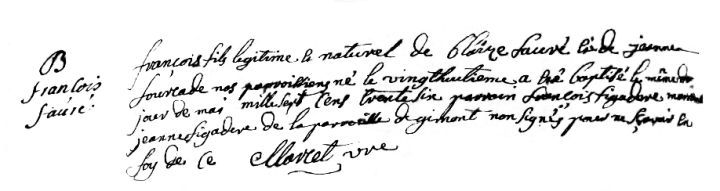 B
françois
fauré
françois fils legitime & naturel de Blaize fauré & de jeanne
fourcade nos parroissiens né le vingthuitieme a été baptisé le même
jour de mai mille sept cens trente six parrain françois figadere marraine
jeanne figadere de la parroisse de gimont non signés pour ne sçavoir en
foy de ce Marret vre